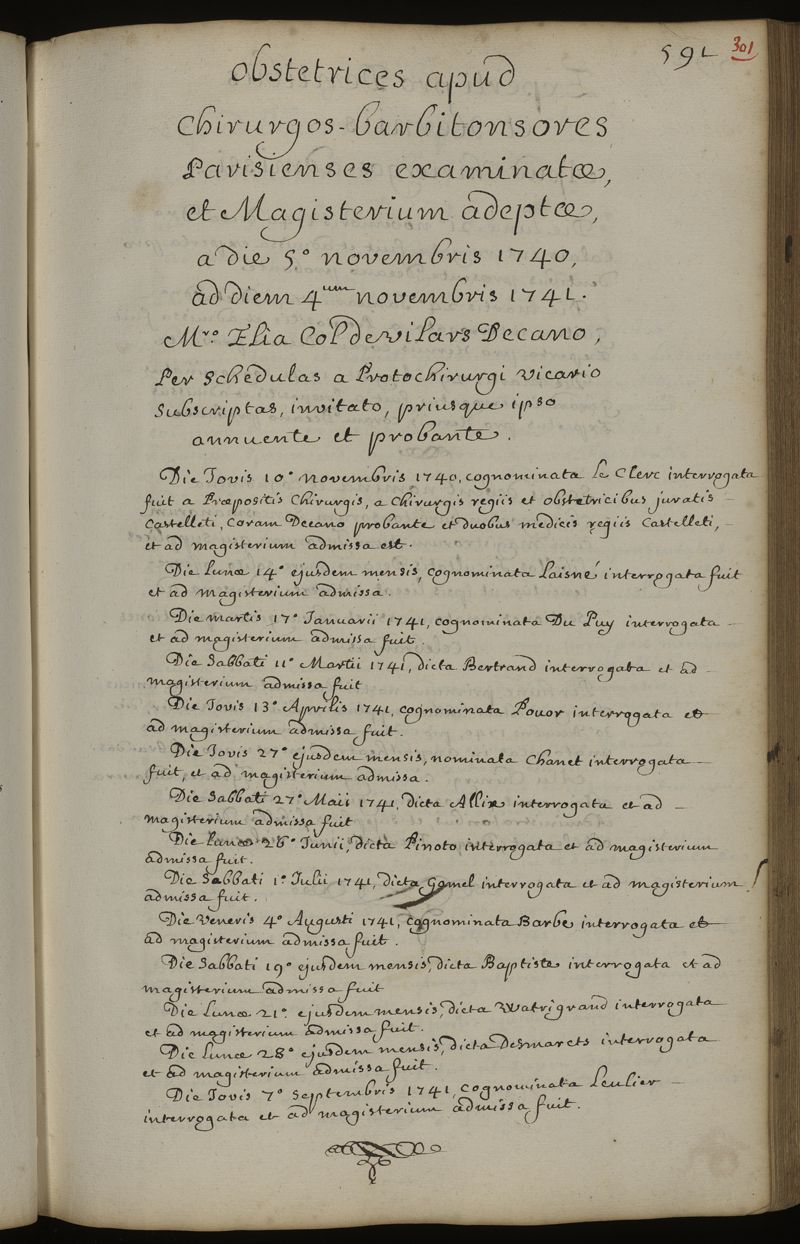 591 301
obstetrices apud
Chirurgos-barbitonsores
Parisienses examinatæ,
et Magisterium adeptæ,
a die 5° novembris 1740,
ad diem 4um novembris 1741.
Mro Elia Col de vilars Decano,
Per Schedulas a Protochirurgi vicario
Subscriptas, invitato, priusque ipso
annuente et probante.
Die Jovis 10° novembris 1740, cognominata le Clerc interrogata
fuit a Præpositis Chirurgis, a Chirurgis regiis et obstetricibus juratis
Castelleti, Coram Decano probante et duobus medicis regiis Castelleti,
et ad magisterium admissa est.
Die Lunæ 14° ejusdem mensis, cognominata Laisné interrogata fuit
et ad magisterium admissa.
Die martis 17° Januarii 1741, cognominata Du Puy interrogata
et ad magisterium admissa fuit.
Die Sabbati 11° Martii 1741, dicta Bertrand interrogata et ad
magisterium admissa fuit
Die Jovis 13° Aprilis 1741, cognominata Pouor interrogata et
ad magisterium admissa fuit.
Die Jovis 27° ejusdem mensis, nominata Chanet interrogata
fuit, et ad magisterium admissa.
Die Sabbati 27° Maii 1741, dicta Allix interrogata et ad
magisterium admissa fuit
Die Lunæ 26° Junii, dicta Pinoto interrogata et ad magisterium
admissa fuit.
Die Sabbati 1° Julii 1741, dicta Gamel interrogata et ad magisterium
admissa fuit.
Die Veneris 4° Augusti 1741, cognominata Barbe interrogata et
ad magisterium admissa fuit.
Die Sabbati 19° ejusdem mensis, dicta Baptiste interrogata et ad
magisterium admissa fuit
Die Lunæ 21° ejusdem mensis, dicta Watrigrand interrogata
et ad magisterium admissa fuit.
Die Lunæ 28° ejusdem mensis, dicta Desmarets interrogata
et ad magisterium admissa fuit.
Die Jovis 7° Septembris 1741, cognominata Leulier
interrogata et ad magisterium admissa fuit.